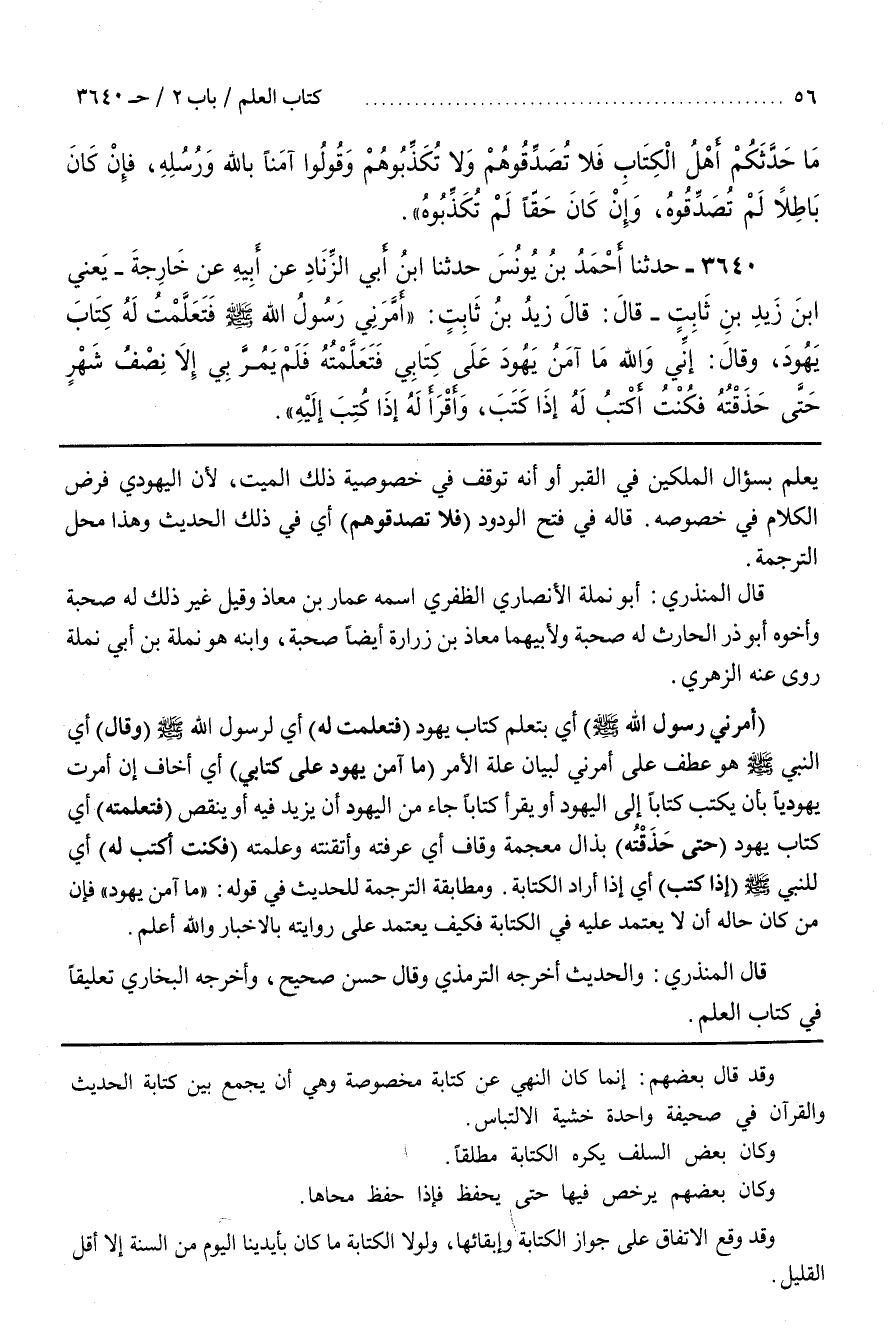 ٥٦ ........................................ كتاب العلم / باب ٢ / حـ ٣٦٤٠
مَا حَدَّثَكُمْ أَهْلُ الْكِتَابِ فَلا تُصَدِّقُوهُمْ وَلا تُكَذِّبُوهُمْ وَقُولُوا آمَناً بالله وَرُسُلِهِ، فإنْ كَانَ
بَاطِلاً لَمْ تُصَدِّقُوهُ، وَإِنْ كَانَ حَقّاً لَمْ تُكَذِّبُوهُ».
٣٦٤٠ ـ حدثنا أَحْمَدُ بنُ يُونُسَ حدثنا ابنُ أَبي الزِّنَادِ عن أَبِيهِ عن خَارِجةَ ـ يَعني
ابنَ زَيدِ بنِ ثَابِتٍ ـ قالَ: قالَ زيدُ بنُ ثَابِتٍ: «أَمَّرَنِي رَسُولُ الله ﷺ فَتَعَلَّمْتُ لَهُ كِتَابَ
يَهُودَ، وقالَ: إنِّي وَالله مَا آمَنُ يَهُودَ عَلَى كِتَابي فَتَعَلَّمْتُهُ فَلَمْ يَمُرَّ بِي إلَا نِصْفُ شَهْرٍ
حَتَّى حَذَقْتُهُ فكُنْتُ أَكْتبُ لَهُ إذَا كَتَبَ، وَأَقْرَأَ لَهُ إذَا كُتِبَ إلَيْهِ».
يعلم بسؤال الملكين في القبر أو أنه توقف في خصوصية ذلك الميت، لأن اليهودي فرض
الكلام في خصوصه. قاله في فتح الودود (فلا تصدقوهم) أي في ذلك الحديث وهذا محل
الترجمة.
قال المنذري: أبو نملة الأنصاري الظفري اسمه عمار بن معاذ وقيل غير ذلك له صحبة
وأخوه أبو ذر الحارث له صحبة ولأبيهما معاذ بن زرارة أيضاً صحبة، وابنه هو نملة بن أبي نملة
روى عنه الزهري.
(أمرني رسول الله ﷺ) أي بتعلم كتاب يهود (فتعلمت له) أي لرسول الله ﷺ (وقال) أي
النبي ﷺ هو عطف على أمرني لبيان علة الأمر (ما آمن يهود على كتابي) أي أخاف إن أمرت
يهودياً بأن يكتب كتاباً إلى اليهود أو يقرأ كتاباً جاء من اليهود أن يزيد فيه أو ينقص (فتعلمته) أي
كتاب يهود (حتى حَذَقْتُه) بذال معجمة وقاف أي عرفته وأتقنته وعلمته (فكنت أكتب له) أي
للنبي ﷺ (إذا كتب) أي إذا أراد الكتابة. ومطابقة الترجمة للحديث في قوله: «ما آمن يهود» فإن
من كان حاله أن لا يعتمد عليه في الكتابة فكيف يعتمد على روايته بالاخبار والله أعلم.
قال المنذري: والحديث أخرجه الترمذي وقال حسن صحيح، وأخرجه البخاري تعليقاً
في كتاب العلم.
وقد قال بعضهم: إنما كان النهي عن كتابة مخصوصة وهي أن يجمع بين كتابة الحديث
والقرآن في صحيفة واحدة خشية الالتباس.
وكان بعض السلف يكره الكتابة مطلقاً.
وكان بعضهم يرخص فيها حتى يحفظ فإذا حفظ محاها.
وقد وقع الاتفاق على جواز الكتابة وإبقائها، ولولا الكتابة ما كان بأيدينا اليوم من السنة إلا أقل
القليل.